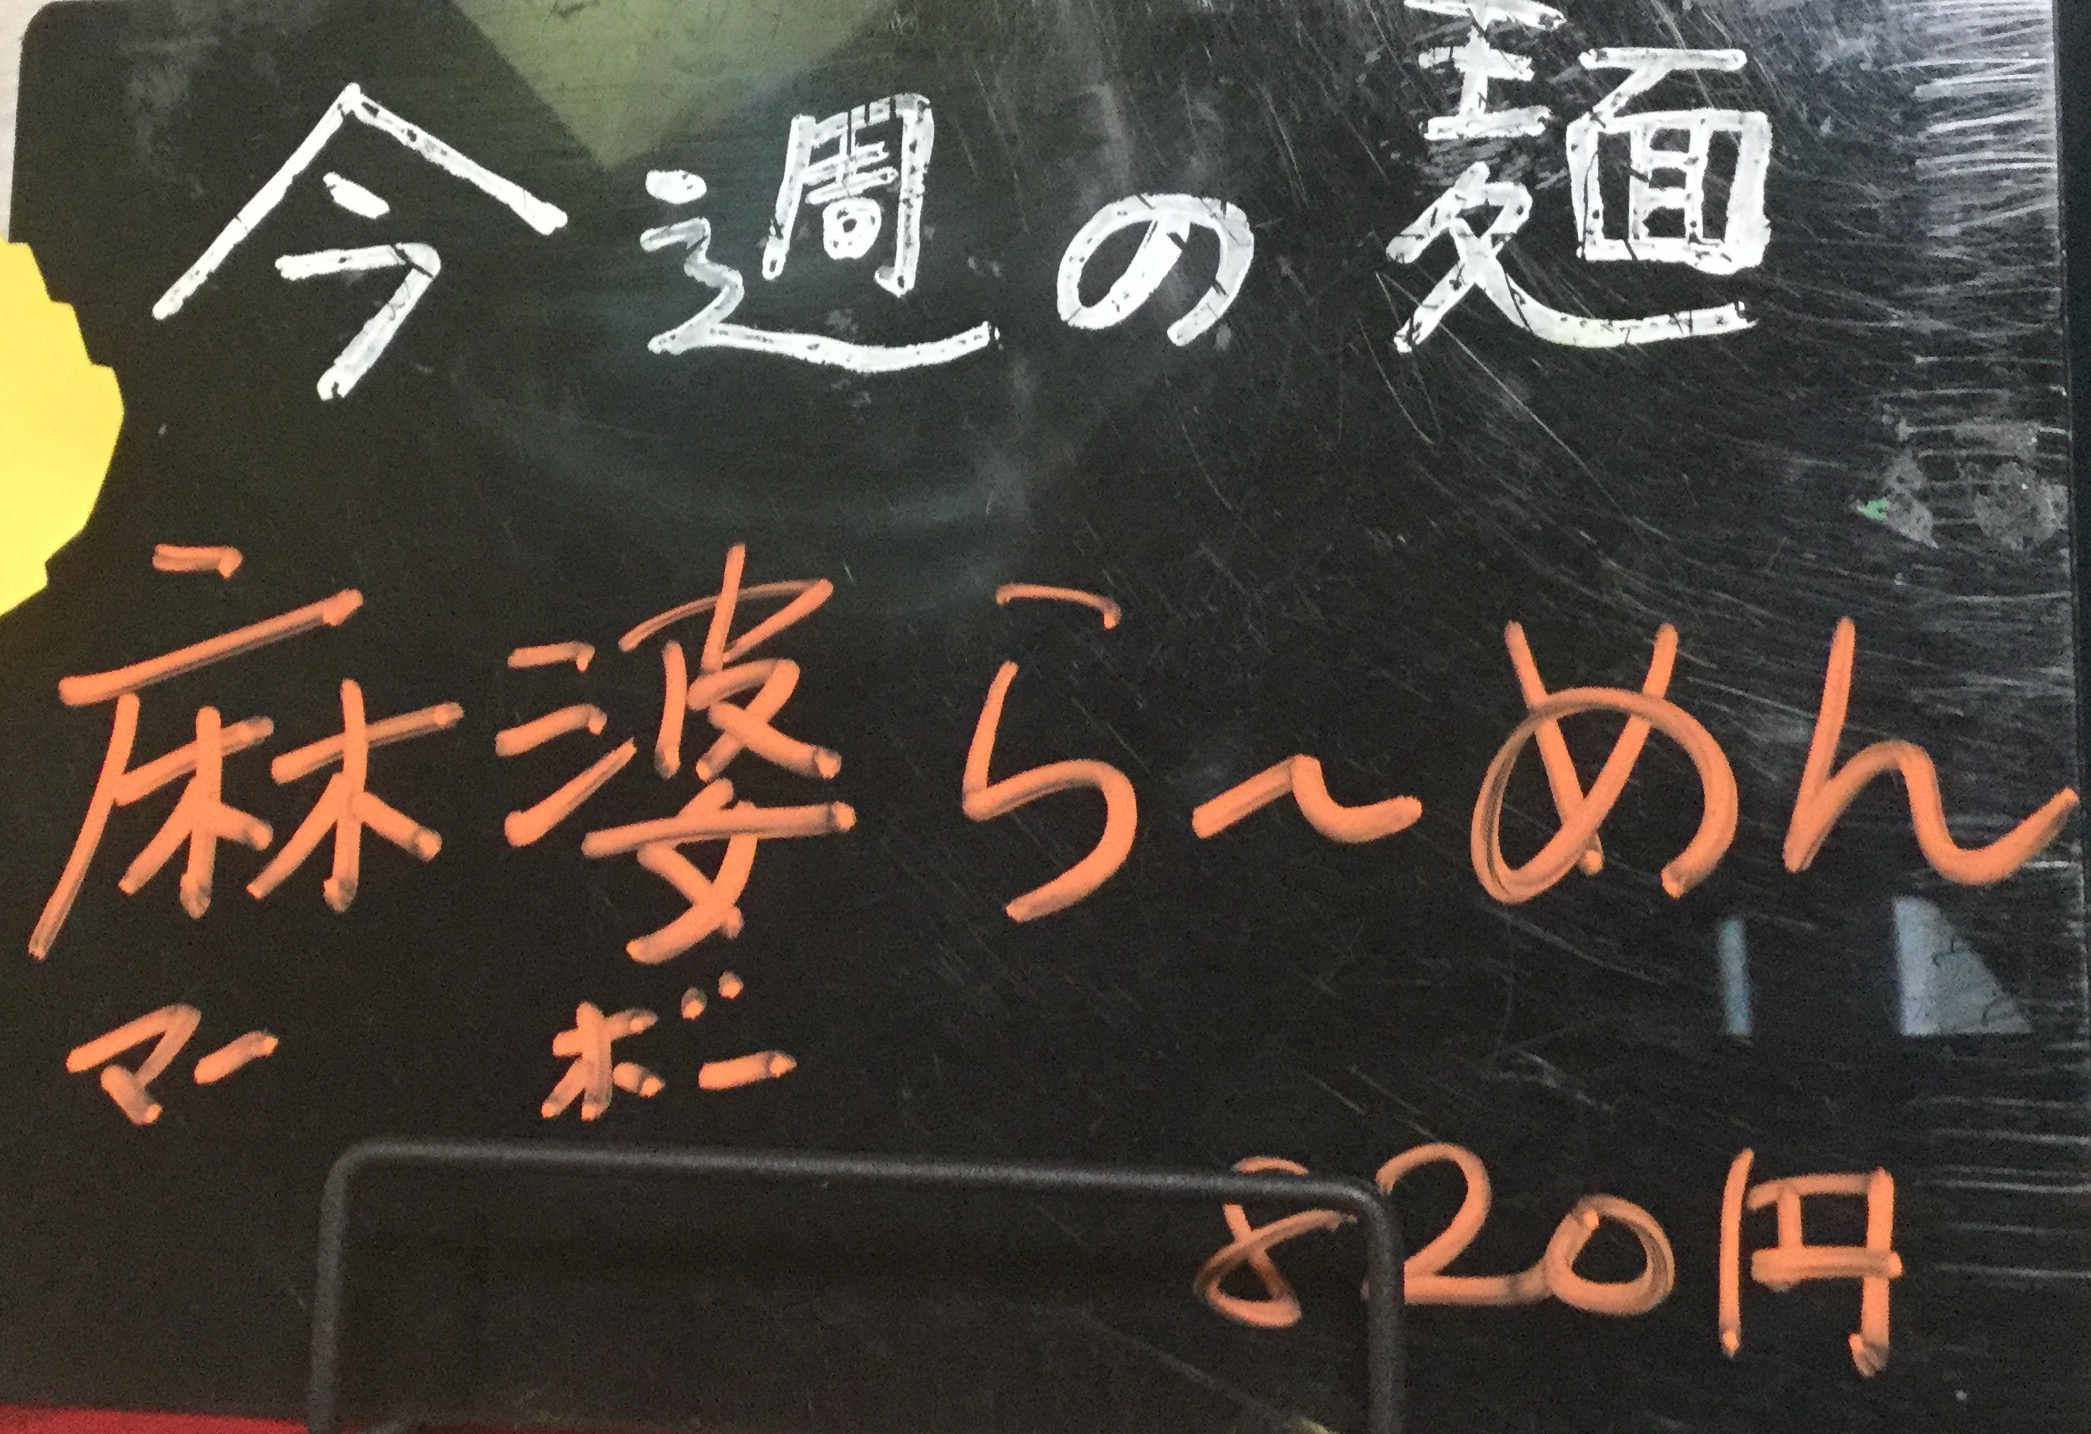 今週の麺
麻婆ら〜めん
マー ボー
820円